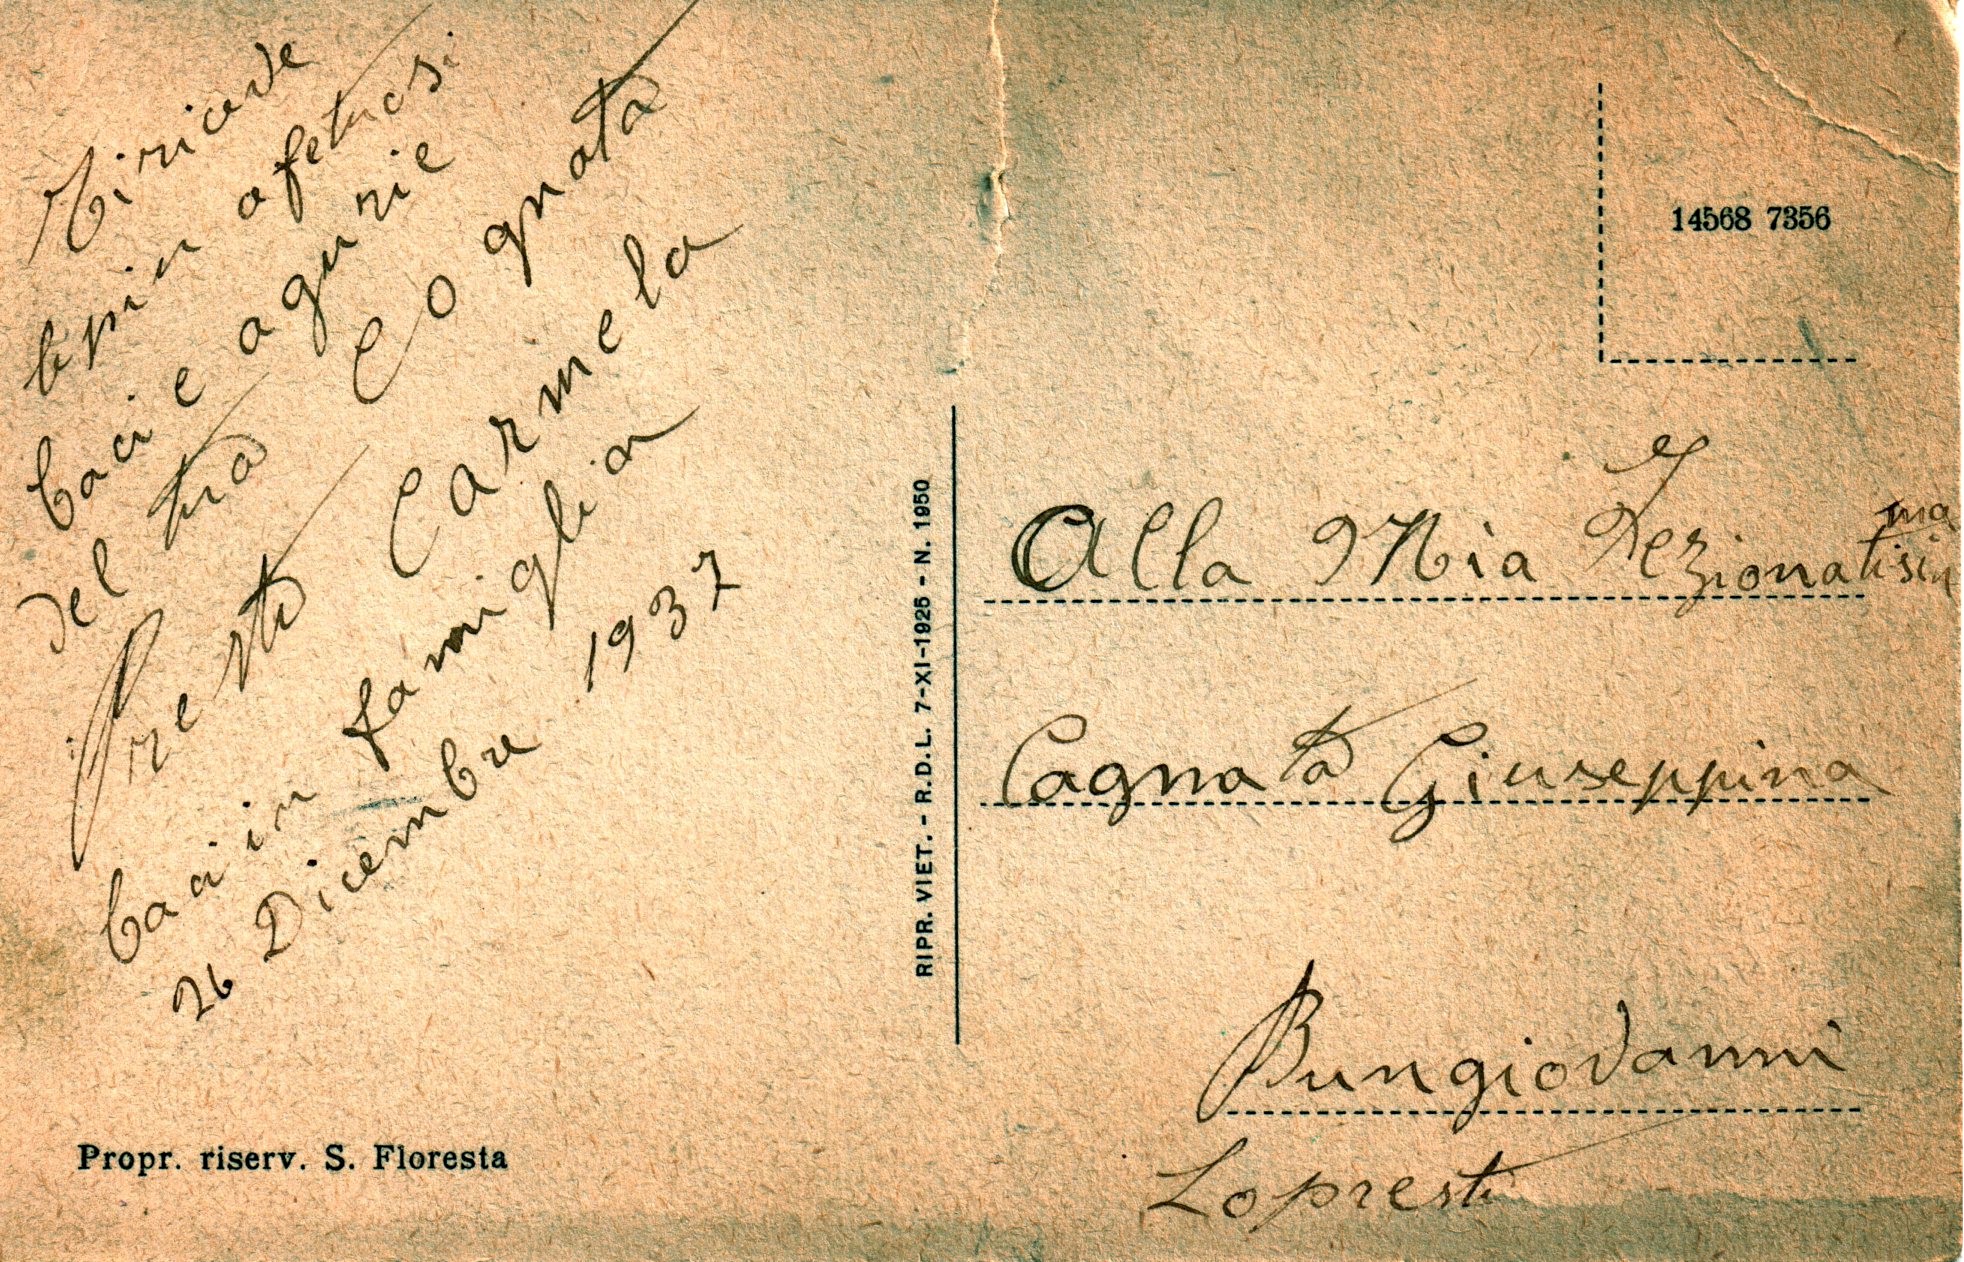 Tiricede
epin afetuosi
baci e agurie
del tua Cognata
Presti Carmela
baci in famiglia
26 Dicembre 1937
Propr. riserv. S. Floresta
RIPR. VIET. - R.D.L. 7-XI-1925 - N. 1950
14568 7356
Alla Mia Fezionatisima
Cagnata Giuseppina
Bungiovanni
Lopresti